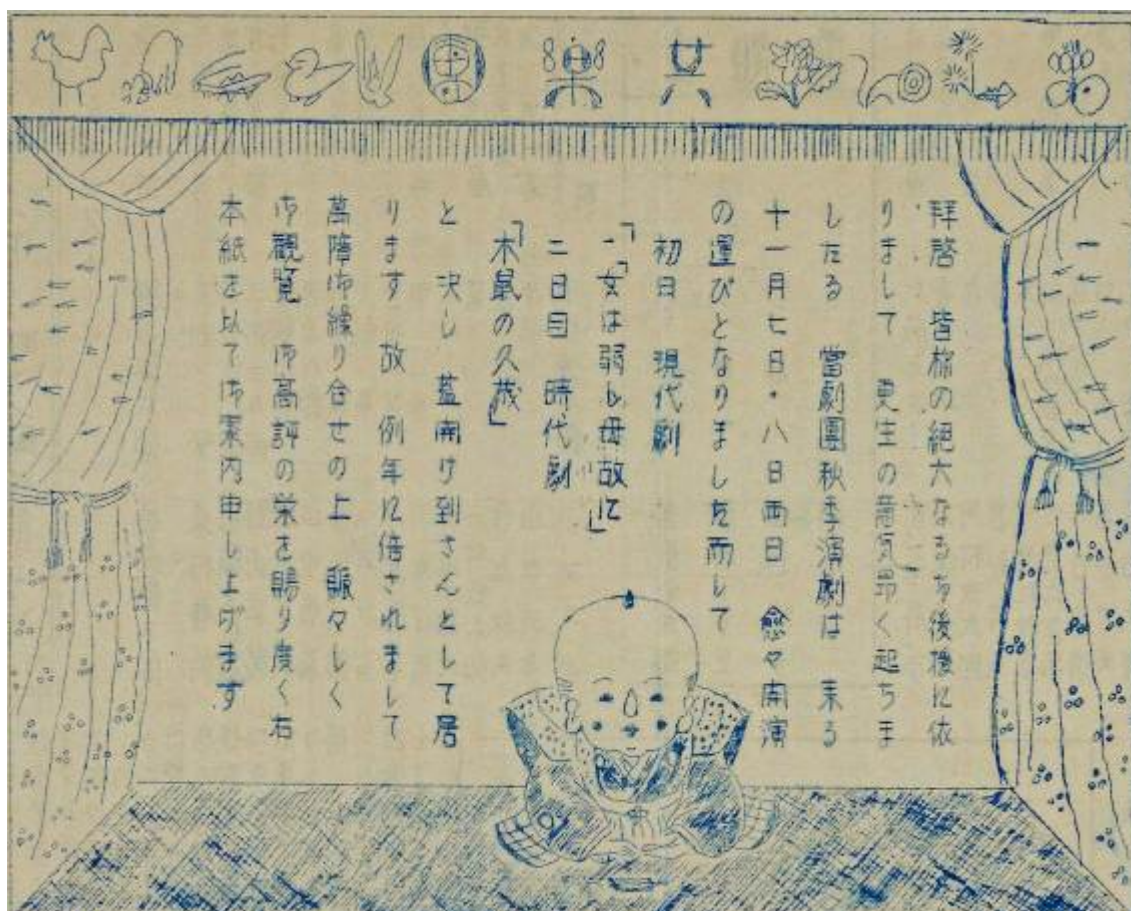 共楽團
拝啓 皆様の絶大なる御後援に依
りまして 更生の意気昂く起ちま
したる 當劇團秋季演劇は 来る
十一月七日・八日両日 愈々開演
の運びとなりました而して
初日 現代劇
一、「女は弱し母故に」
二日目 時代劇
「木鼠の久蔵」
と 決し 蓋開け到さんとして居
ります 故 例年に倍されまして
萬障御繰り合せの上 賑々しく
御観覧 御高評の栄を賜り度く右
本紙を以て御案内申し上げます